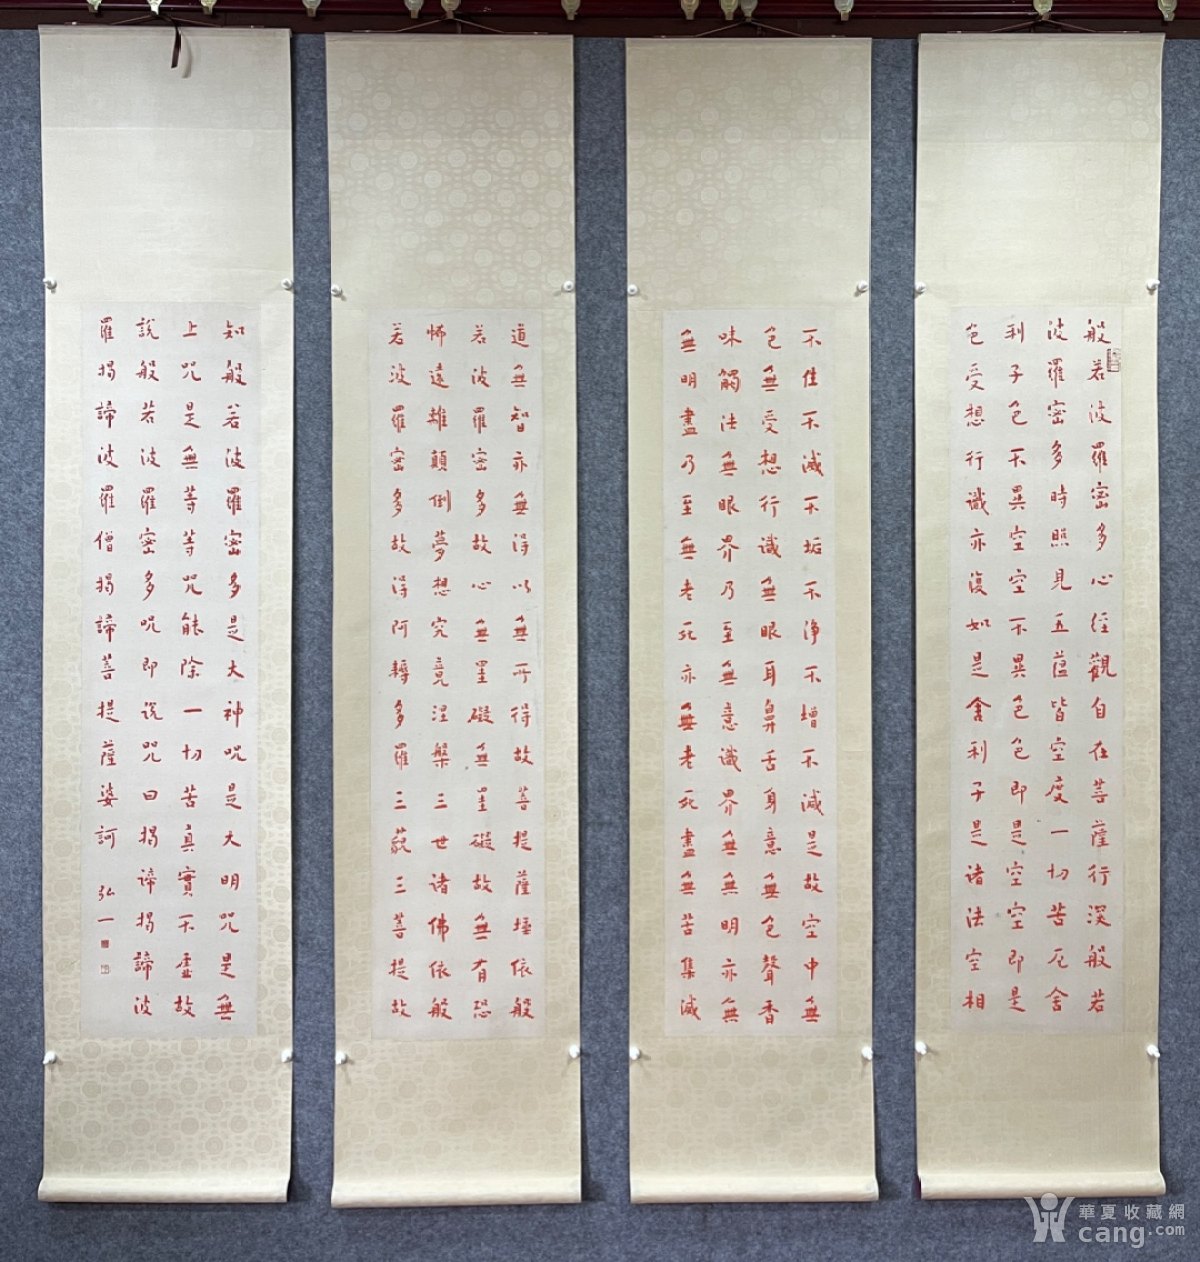 般若波羅密多心經觀自在菩薩行深般若
波羅密多時照見五蘊皆空度一切苦厄舍
利子色不異空空不異色色即是空空即是
色受想行識亦復如是舍利子是諸法空相
不住不滅不垢不淨不增不減是故空中無
色無受想行識無眼耳鼻舌身意無色聲香
味觸法無眼界乃至無意識界無無明亦無
無明盡乃至無老死亦無老死盡無苦集滅
道無智亦無得以無所得故菩提薩埵依般
若波羅密多故心無罣礙無罣礙故無有恐
怖遠離顛倒夢想究竟涅槃三世諸佛依般
若波羅密多故得阿耨多羅三藐三菩提故
知般若波羅密多是大神咒是大明咒是無
上咒是無等等咒能除一切苦真實不虛故
說般若波羅密多咒即說咒曰揭諦揭諦波
羅揭諦波羅僧揭諦菩提薩婆訶 弘一
華夏收藏網
cang.com